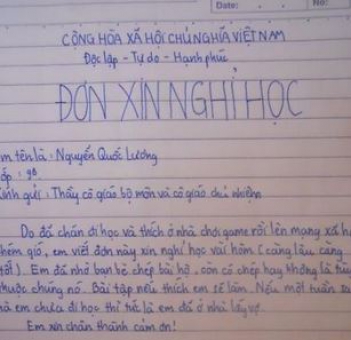 Date: No:
CỘNG HÒA XÃ HỘI CHỦ NGHĨA VIỆT NAM
Độc lập - Tự do - Hạnh phúc
ĐƠN XIN NGHỈ HỌC
m tên là: Nguyễn Quốc Lương
ớp: 9B
Kính gửi: Thầy cô giáo bộ môn và cô giáo chủ nhiệm
Do đã chán đi học và thích ở nhà chơi game rồi lên mạng xã h
chém gió, em viết đơn này xin nghỉ học vài hôm (càng lâu càng
tốt). Em đã nhờ bạn bè chép bài hộ, còn có chép hay không là tùy
thuộc chúng nó. Bài tập nếu thích em sẽ làm. Nếu một tuần sa
mà em chưa đi học thì tức là em đã ở nhà lấy vợ.
Em xin chân thành cảm ơn!